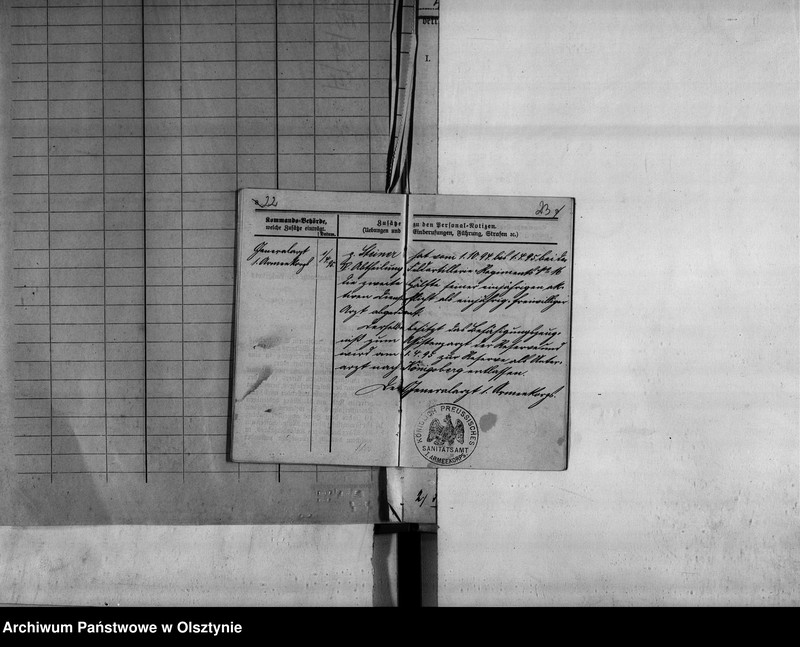 22
23
Kommando-Behörde,
welche Zusätze einträgt.
(Datum.
Zusätze zu den Personal-Notizen.
(Uebungen und Einberufungen, Führung, Strafen ec.)
Generalarzt
1. Armeekorps
1/4 95.
p. Steiner hat vom 1.10.94 bis 1.4.95 bei der
Abtheilung Feldartillerie Regiments No 16
die zweite Hälfte seiner einjährigen ak-
tiven Dienstpflicht als einjährig-freiwilliger
Arzt abgeleistet.
Derselbe besitzt das Befähigungszeug-
niß zum Assistenzarzt der Reserve und
wird am 1.4.95 zur Reserve als Unter-
arzt nach Königsberg entlassen.
Der Generalarzt 1. Armeekorps.
KÖNIGLICH PREUSSISCHES
SANITÄTSAMT
I. ARMEEKORPS
I.
2/
Archiwum Państwowe w Olsztynie